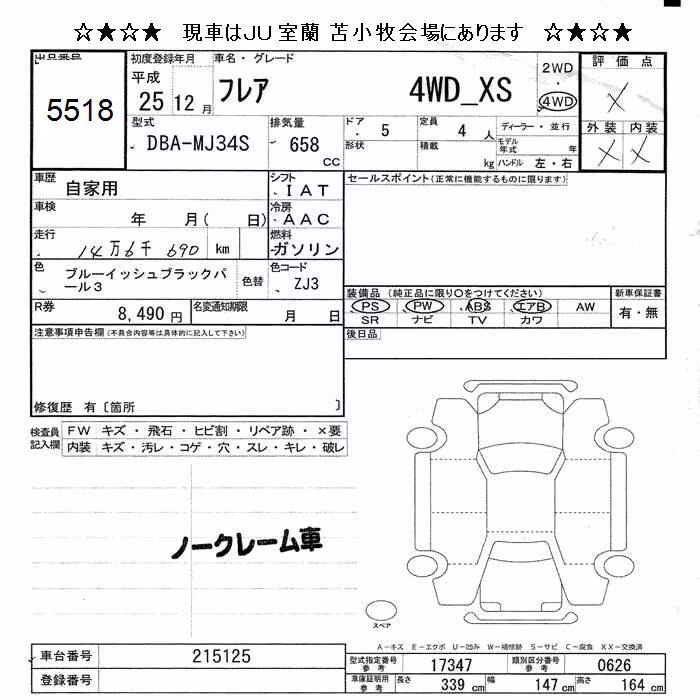 ☆★☆★ 現車はJU室蘭 苫小牧会場にあります ☆★☆★
出品番号 5518
初度登録年月 平成 25 12月
車名・グレード フレア 4WD_XS
2WD ・ 4WD
評価点 ×
外装 × 内装 ×
型式 DBA-MJ34S
排気量 658 CC
ドア 5 定員 4 人 ディーラー・並行
形状 積載 kg モデル年式 年 ハンドル 左・右
車歴 自家用
シフト IAT
セールスポイント(正常に機能するものに限ります)
車検 年 月( 日)
冷房 AAC
走行 14万6千 690 km
燃料 ガソリン
色 ブルーイッシュブラックパール3 色替
色コード ZJ3
装備品 (純正品に限り○をつけてください) 新車保証書
PS PW ABS エアB AW 有・無
SR ナビ TV カワ
R券 8,490円 名変通知期限 月 日
注意事項申告欄(不具合内容等は具体的に記入して下さい)
後日品
修復歴 有〔箇所 〕
検査員記入欄
FW キズ・飛石・ヒビ割・リペア跡・×要
内装 キズ・汚レ・コゲ・穴・スレ・キレ・破レ
ノークレーム車
スペア
A-キズ E-エクボ U-凹み W-補修跡 S-サビ C-腐食 XX-交換済
車台番号 215125
登録番号
型式指定番号 参考 17347 類別区分番号 参考 0626
車庫証明用 参考 長さ 339 cm 幅 147 cm 高さ 164 cm